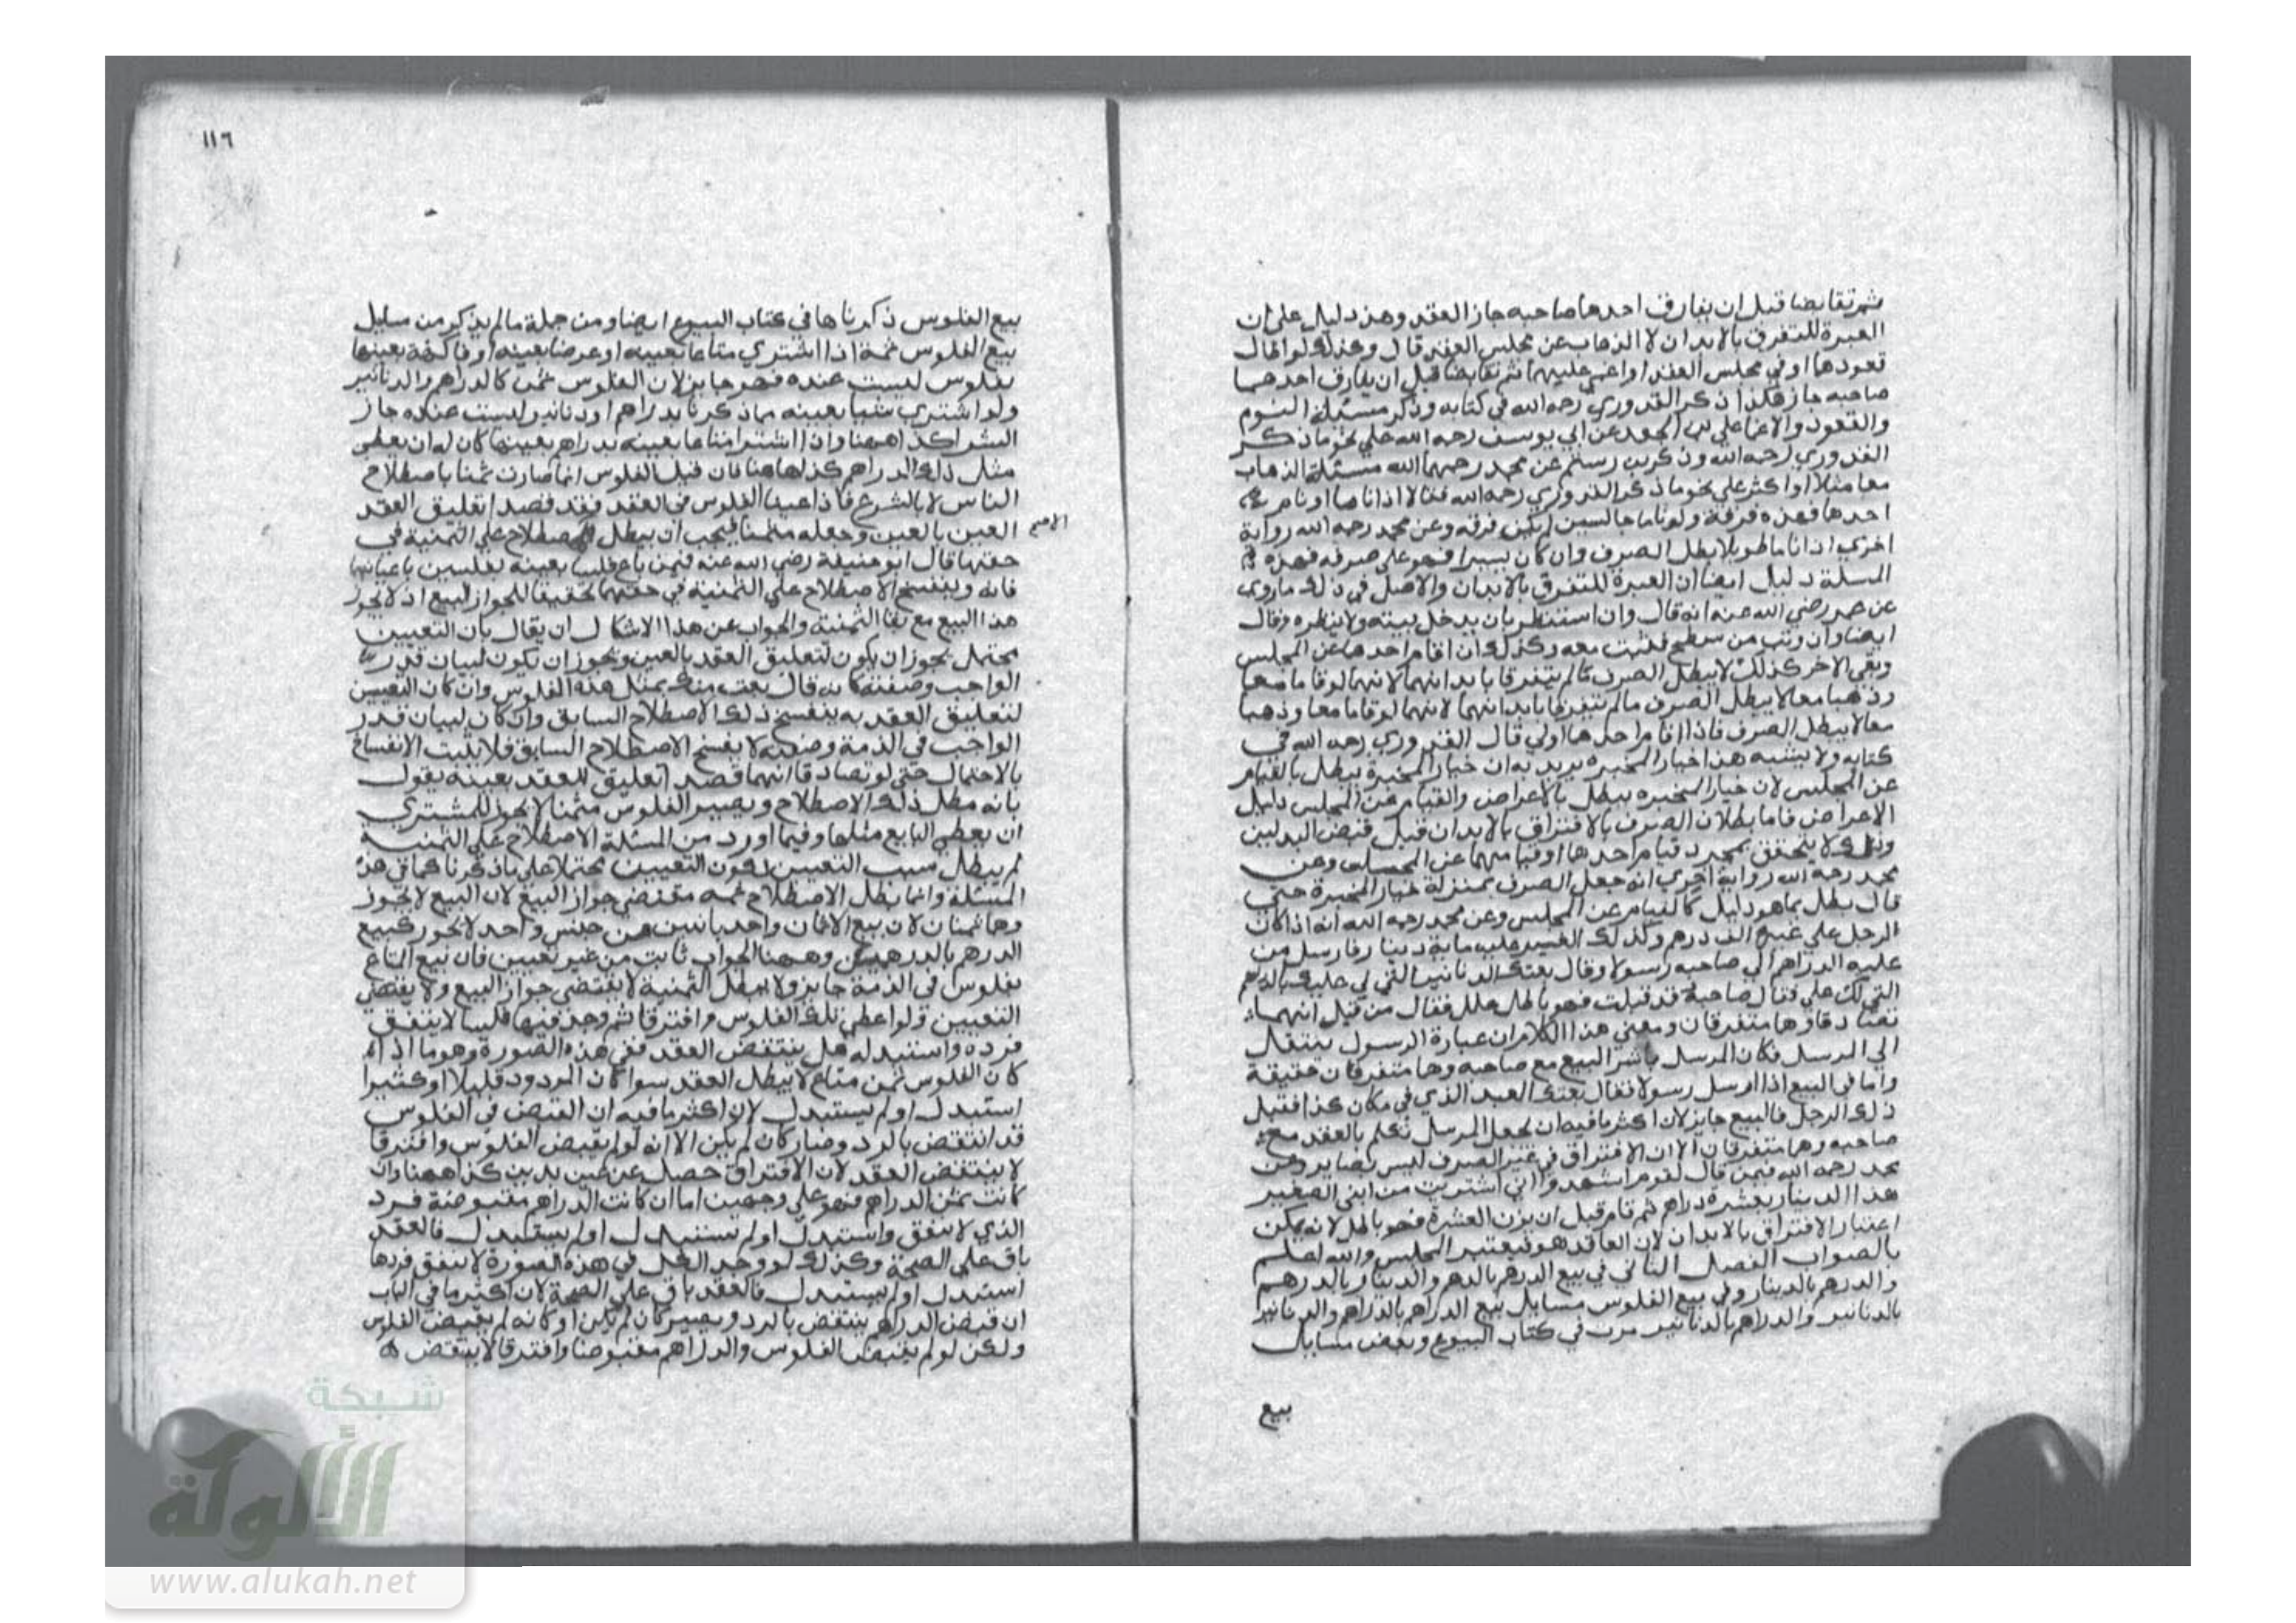 ثم تقابضا قبل ان يفارق احدهما صاحبه جاز العقد وهذ دليل على ان
العبرة للتفرق بالابدان لا الذهاب عن مجلس العقد قال وكذلك لو طال
قعودهما وفي مجلس العقد او اغمي عليهما ثم تقابضا قبل ان يفارق احدهما
صاحبه جاز هكذا ذكر القدوري رحمه الله في كتابه وذكر مسئلة النوم
والقعود والاغما علي بن الجعد عن ابي يوسف رحمه الله علي نحو ما ذكر
القدوري رحمه الله وذكر بن رستم عن محمد رحمهما الله مسئلة الذهاب
معا مثلا او اكثر علي نحو ما ذكر القدوري رحمه الله فقالا اذا ناما او نام
احدهما فهذه فرقة ولو ناما جالسين لم يكن فرقه وعن محمد رحمه الله رواية
اخري اذا ناما طويلا بطل الصرف وان كان يسيرا فهو علي صرفه فهذه
المسلة دليل ايضا ان العبرة للتفرق بالابدان والاصل في ذلك ما روي
عن عمر رضي الله عنه انه قال وان استنظر بان يدخل بيته ولا ينظره وقال
ايضا وان وثب من سطح فثب معه وكذلك ان اقام احدهما عن المجلس
وبقي الاخر كذلك لا يبطل الصرف ما لم يتفرقا بابدانهما لانهما لو قاما معا
وذهبا معا لا يبطل الصرف ما لم يتفرقا بابدانهما لانهما لو قاما معا وذهبا
معا لا يبطل الصرف فاذا قام احدهما اولي قال القدوري رحمه الله في
كتابه ولا يشبه هذا خيار المخيره يريد به ان خيار المخيرة يبطل بالقيام
عن المجلس لان خيار المخيره يبطل بالاعراض والقيام عن المجلس دليل
الاعراض فاما بطلان الصرف بالافتراق بالابدان قبل قبض البدلين
وذلك لا يتحقق بمجرد قيام احدهما او قيامهما عن المجلس وعن
محمد رحمه الله رواية اخري انه جعل الصرف بمنزلة خيار المخيرة حتي
قال يبطل بما هو دليل كالقيام عن المجلس وعن محمد رحمه الله انه اذا كان
الرجل علي غيره الف درهم وكذلك الغير عليه ماية دينار فارسل من
عليه الدراهم الي صاحبه رسولا وقال بعتك الدنانير التي لي عليك بالدراهم
التي لك علي وقال صاحبه قد قبلت فهو باطل علل فقال من قبل انهما
تصادقا وهما متفرقان ومعني هذا الكلام ان عبارة الرسول ينتقل
الي المرسل فكان المرسل باشر البيع مع صاحبه وهما متفرقان حقيقة
واما في البيع اذا ارسل رسولا فقال بعتك العبد الذي في مكان كذا فقبل
ذلك الرجل فالبيع جايز لان اكثر ما فيه ان يجعل المرسل تكلم بالعقد مع
صاحبه وهما متفرقان الا ان الافتراق في غير الصرف ليس بضاير وعن
محمد رحمه الله فيمن قال لقوم اشهدوا اني اشتريت من ابني الصغير
هذا الدينار بعشرة دراهم ثم قام قبل ان يزن العشرة فهو باطل لانه يمكن
اعتبار الافتراق بالابدان لان العاقد هو فيعتبر المجلس والله اعلم
بالصواب الفصل الثاني في بيع الدرهم بالدرهم والدينار بالدرهم
والدرهم بالدينار وفي بيع الفلوس مسايل بيع الدراهم بالدراهم والدنانير
بالدنانير والدراهم بالدنانير مرت في كتاب البيوع وبعض مسايل
بيع
١١٦
بيع الفلوس ذكرناها في كتاب البيوع ايضا ومن جملة ما لم يذكر من مسايل
بيع الفلوس ثمة اذا اشتري متاعا بعينه او عرضا بعينه او فاكهة بعينها
بفلوس ليست عنده فهو جايز لان الفلوس ثمن كالدراهم والدنانير
ولو اشتري شيا بعينه مما ذكرنا بدراهم او دنانير وليست عنده جاز
الشرا كذا ههنا واذا اشترا متاعا بعينه بدراهم بعينها كان له ان يعطي
مثل ذلك الدراهم كذا هاهنا فان قيل الفلوس انما صارت ثمنا باصطلاح
الناس لا بالشرع فاذا عينا الفلوس في العقد فقد قصدا تعليق العقد
العين بالعين وجعله مثمنا فيجب ان يبطل الاصطلاح علي الثمنية في
حقهما قال ابو حنيفة رضي الله عنه فيمن باع فلسا بعينه بفلسين باعيانهما
فانه وينفسخ الاصطلاح علي الثمنية في حقهما تحقيقا للجواز البيع اذ لا يجوز
هذا البيع مع بقا الثمنية والجواب عن هذا الاشكال ان يقال بان التعيين
محتمل يجوز ان يكون لتعليق العقد بالعين ويجوز ان يكون لبيان قدر
الواجب وصفته كانه قال بعت منك بمثل هذه الفلوس وان كان التعيين
لتعليق العقد به ينفسخ ذلك الاصطلاح السابق وان كان لبيان قدر
الواجب في الذمة وصفته لا يفسخ الاصطلاح السابق فلا يثبت الانفساخ
بالاحتمال حتي لو تصادقا انهما قصدا تعليق العقد بعينه يقول
بانه مطل ذلك الاصطلاح ويصير الفلوس مثمنا لا يجوز للمشتري
ان يعطي البايع مثلها وفيما اورد من المسئلة الاصطلاح علي الثمنية
لم يبطل سبب التعيين لكون التعيين محتملا علي ما ذكرنا كما في هذه
المسئلة وانما بطل الاصطلاح ثمه مقتضي جواز البيع لان البيع لا يجوز
وهما ثمنان لان بيع الاثمان واحد باثنين من جنس واحد لا يجوز كبيع
الدرهم بالدرهمين وههنا الجواب ثابت من غير تعيين فان بيع المتاع
بفلوس في الذمة جايز ولا يبطل الثمنية لا يقتضي جواز البيع ولا يقتضي
التعيين ولو اعطي تلك الفلوس وافترقا ثم وجد فيها فلسا لا ينفق
فرده واستبدله هل ينتقض العقد ففي هذه الصورة وهو ما اذا
كان الفلوس ثمن متاع لا يبطل العقد سوا كان المردود قليلا او كثيرا
استبدل او لم يستبدل لان اكثر ما فيه ان القبض في الفلوس
قد انتقض بالرد وصار كان لم يكن الا انه لو لم يقبض الفلوس وافترقا
لا ينتقض العقد لان الافتراق حصل عن عين بدين كذا ههنا وان
كانت ثمن الدراهم فهو علي وجهين اما ان كانت الدراهم مقبوضة فرد
الذي لا ينفق واستبدل او لم يستبدل او لم يستبدل فالعقد
باق علي الصحة وكذلك لو وجد الكل في هذه الصورة لا ينفق فردها
استبدل او لم يستبدل فالعقد باق علي الصحة لان اكثر ما في الباب
ان قبض الدراهم ينتقض بالرد ويصير كان لم يكن او كانه لم يقبض الفلوس
ولكن لو لم يقبض الفلوس والدراهم مقبوضا وافترقا لا ينتقض
شبكة
الألوكة
www.alukah.net